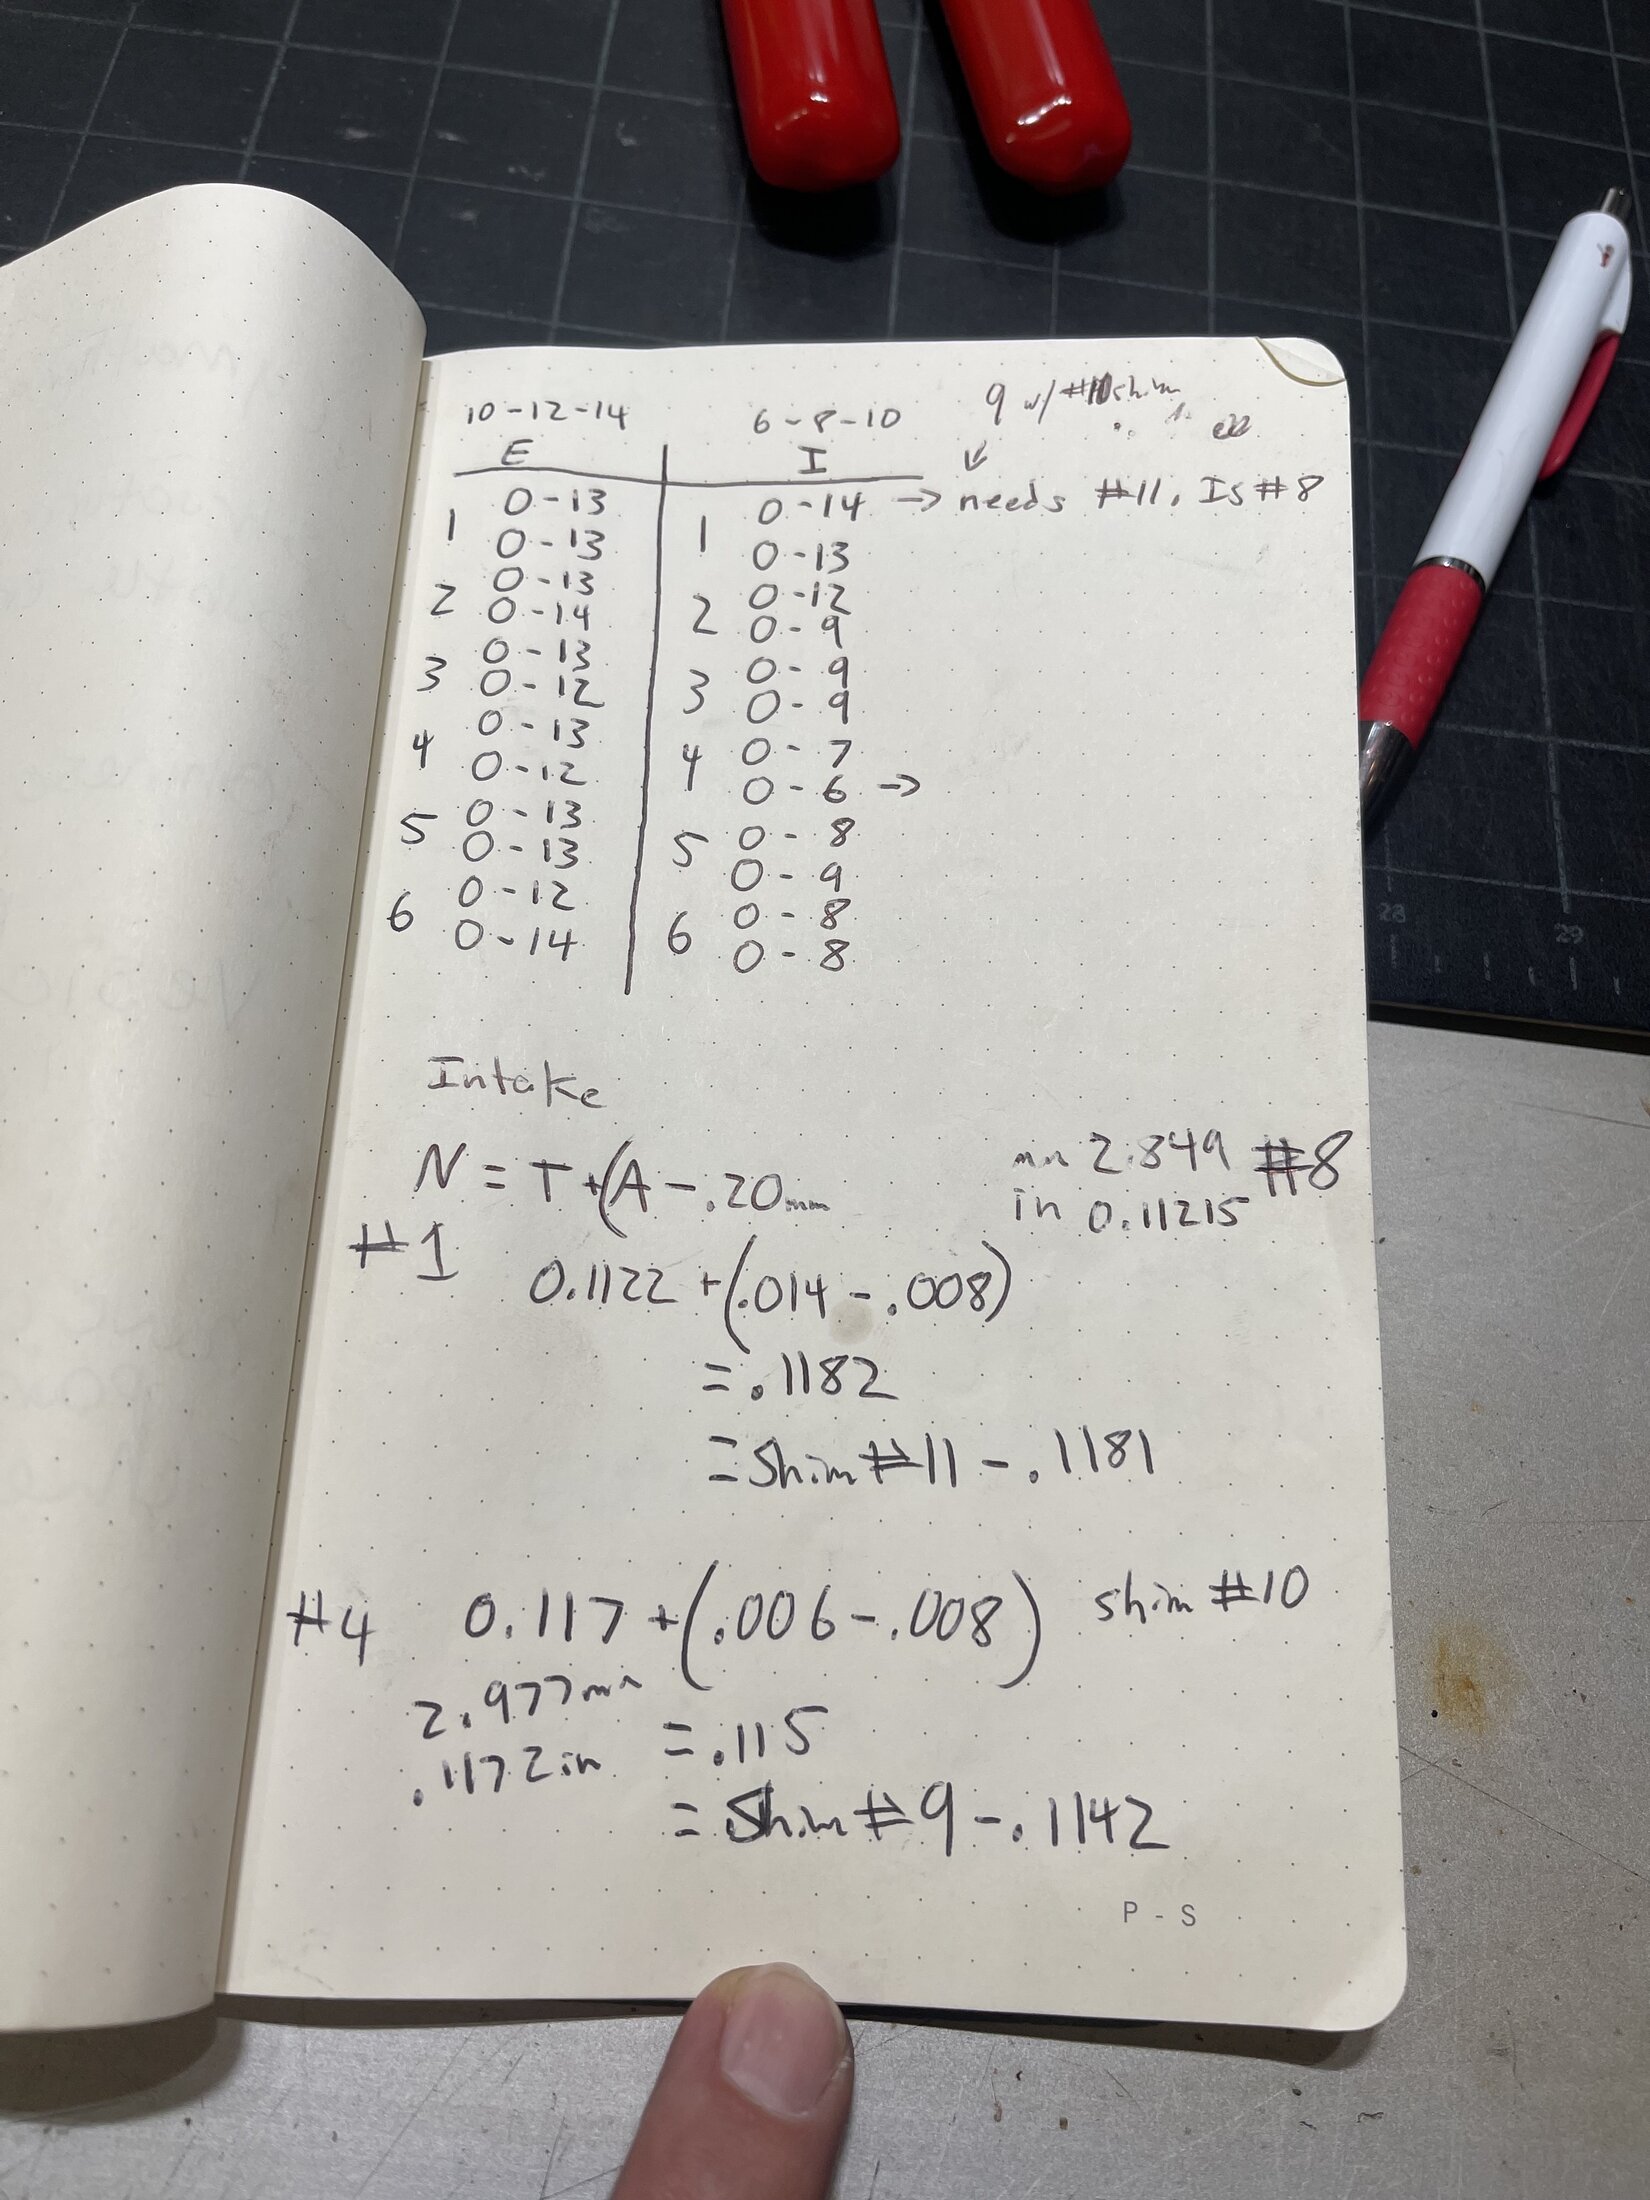 10-12-14 6-8-10 9 w/ #10 shim
E I
1 0-13 1 0-14 → needs #11. Is #8
0-13 0-13
2 0-13 2 0-12
0-14 0-9
3 0-13 3 0-9
0-12 0-9
4 0-13 4 0-7
0-12 0-6 →
5 0-13 5 0-8
0-13 0-9
6 0-12 6 0-8
0-14 0-8
Intake
N = T + (A - .20mm
mm 2.849 #8
in 0.11215
#1 0.1122 + (.014 - .008)
= .1182
= Shim #11 - .1181
#4 0.117 + (.006 - .008) shim #10
2.977mm
.1172in
= .115
= Shim #9 - .1142
P - S
28
29